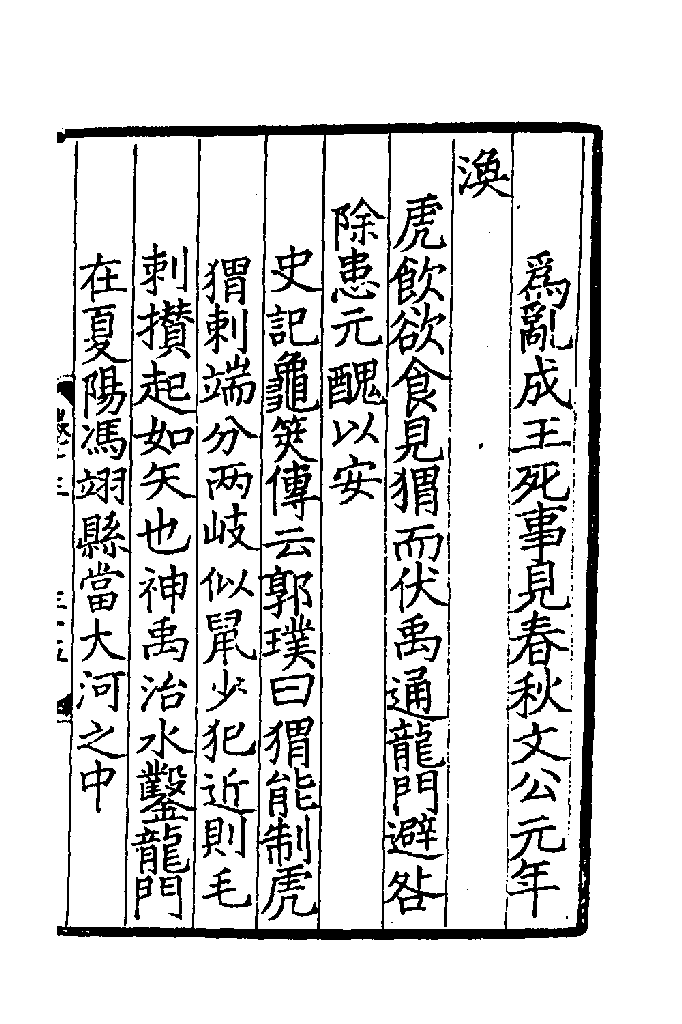 為亂成王死事見春秋文公元年
渙
虎飲欲食見猬而伏禹通龍門避咎
除患元醜以安
史記龜筴傳云郭璞曰猬能制虎
猬刺端分两岐似鼠少犯近則毛
刺攅起如矢也神禹治水鑿龍門
在夏陽馮翊縣當大河之中